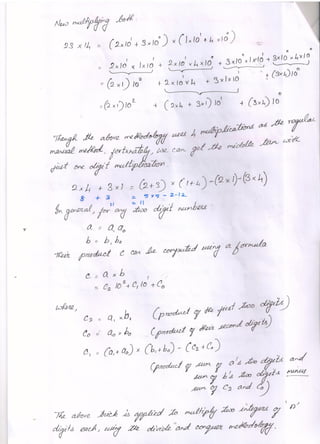 Now multiplying both.
23 x 14 = (2x10¹ + 3x10⁰) x (1x10¹ + 4x10⁰)
= 2x10¹ x 1x10¹ + 2x10¹ x 4x10⁰ + 3x10⁰ x 1x10¹ + 3x10⁰ x 4x10⁰
= (2x1) 10² + 2x10¹x4 + 3x1x10¹ + (3x4)10⁰
= (2x1)10² + (2x4 + 3x1) 10¹ + (3x4) 10⁰
Though the above methodology uses 4 multiplications as the regular
manual method, fortunately, we can get the middle term with
just one digit multiplication
2x4 + 3x1 = (2+3) x (1+4) - (2x1) - (3x4)
8 + 3 = 5x5 - 2-12
11 = 11
In general, for any two digit numbers
a = a₁ a₀
b = b₁ b₀
Their product c can be computed using a formula
c = a x b
= C₂ 10² + C₁ 10¹ + C₀
where,
C₂ = a₁ x b₁ (product of the first two digits)
C₀ = a₀ x b₀ (product of their second digits)
C₁ = (a₁+a₀) x (b₁+b₀) - (C₂+C₀)
(product of sum of a's two digits and
sum of b's two digits minus
sum of C₂ and C₀)
The above trick is applied to multiply two integers of 'n'
digits each, using the divide and conquer methodology.